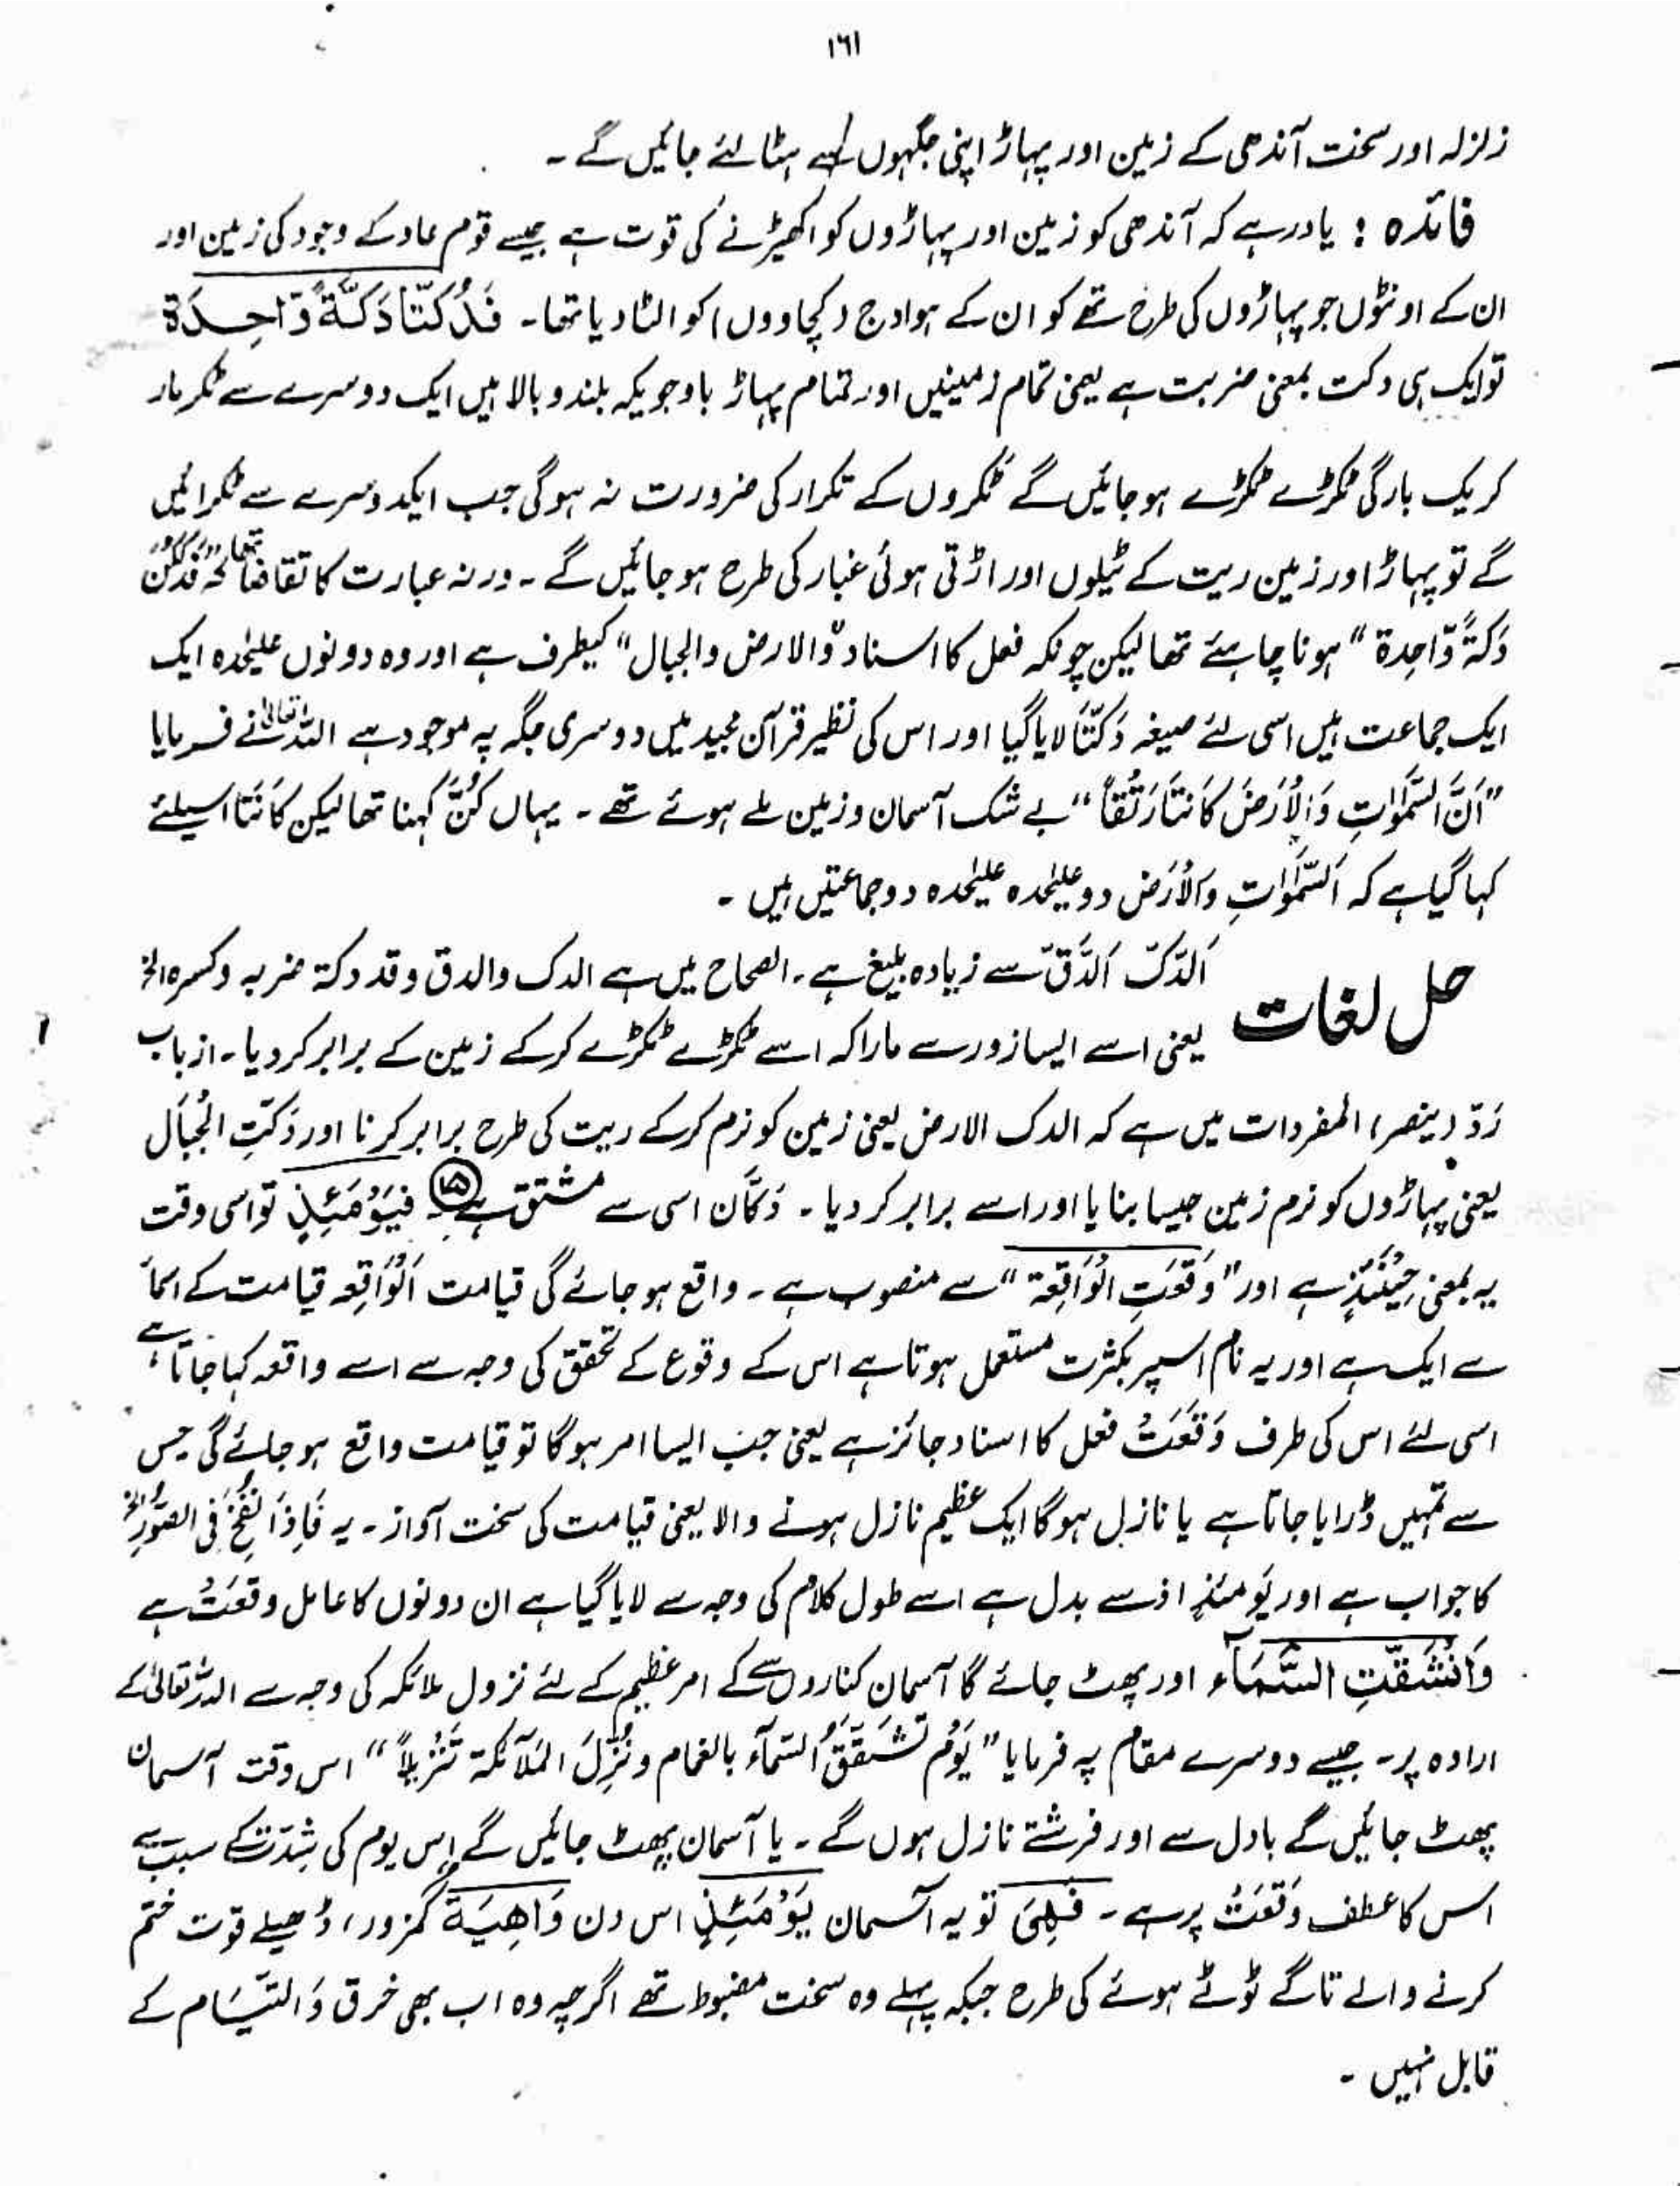 ۱۶۱
زلزلہ اور سخت آندھی کے زمین اور پہاڑ اپنی جگہوں سے ہٹا لئے جائیں گے ۔
فائدہ : یاد رہے کہ آندھی کو زمین اور پہاڑوں کو اکھیڑنے کی قوت ہے جیسے قوم عاد کے وجود کی زمین اور
ان کے اونٹوں جو پہاڑوں کی طرح تھے کو ان کے ہوادج (کچاووں) کو الٹا دیا تھا ۔ فَدُكَّتَا دَكَّةً وَّاحِدَةً
تو ایک ہی دکت بمعنی ضربت ہے یعنی تمام زمینیں اور تمام پہاڑ باوجودیکہ بلند و بالا ہیں ایک دوسرے سے ٹکر مار
کر یک بارگی ٹکڑے ٹکڑے ہو جائیں گے ٹکروں کے تکرار کی ضرورت نہ ہو گی جب ایکدوسرے سے ٹکرائیں
گے تو پہاڑ اور زمین ریت کے ٹیلوں اور اڑتی ہوئی غبار کی طرح ہو جائیں گے ۔ ورنہ عبارت کا تقاضا تھا کہ "فَدُكِكْنَ
دَكَّةً وَّاحِدة" ہونا چاہئے تھا لیکن چونکہ فعل کا اسناد "والارض والجبال" کیطرف ہے اور وہ دونوں علیٰحدہ ایک
ایک جماعت ہیں اسی لئے صیغہ دُکَّتَا لایا گیا اور اس کی نظیر قرآن مجید میں دوسری جگہ پہ موجود ہے اللہ تعالیٰ نے فرمایا
"اَنَّ السَّمٰوَاتِ وَالْاَرْضَ كَانَتَا رَتْقًا" بے شک آسمان و زمین ملے ہوئے تھے ۔ یہاں کُنَّ کہنا تھا لیکن کَانَتَا اسیلئے
کہا گیا ہے کہ اَلسَّمٰوَاتِ وَالْاَرْضَ دو علیٰحدہ علیٰحدہ دو جماعتیں ہیں ۔
حل لغات اَلدَّکّ اَلدَّقّ سے زیادہ بلیغ ہے ۔ الصحاح میں ہے الدک والدق وقد دکتہ ضربہ وکسرہ الخ
یعنی اسے ایسا زور سے مارا کہ اسے ٹکڑے ٹکڑے کر کے زمین کے برابر کر دیا ۔ از باب
رَدّ (ینصر) المفردات میں ہے کہ الدک الارض یعنی زمین کو نرم کر کے ریت کی طرح برابر کرنا اور دَکَّتِ الْجِبَال
یعنی پہاڑوں کو نرم زمین جیسا بنایا اور اسے برابر کر دیا ۔ دُکَّان اسی سے مشتق ہے ۱۵ فَيَوْمَئِذٍ تو اسی وقت
یہ بمعنی حِیْنَئِذٍ ہے اور "وَقَعَتِ الْوَاقِعَة" سے منصوب ہے ۔ واقع ہو جائے گی قیامت اَلْوَاقِعہ قیامت کے اسماء
سے ایک ہے اور یہ نام اسپر بکثرت مستعمل ہوتا ہے اس کے وقوع کے تحقق کی وجہ سے اسے واقعہ کہا جاتا ہے
اسی لئے اس کی طرف وَقَعَتْ فعل کا اسناد جائز ہے یعنی جب ایسا امر ہوگا تو قیامت واقع ہو جائے گی جس
سے تمہیں ڈرایا جاتا ہے یا نازل ہو گا ایک عظیم نازل ہونے والا یعنی قیامت کی سخت آواز ۔ یہ فَاِذَا نُفِخَ فِی الصُّوْرِ الخ
کا جواب ہے اور یَومئذٍ اذسے بدل ہے اسے طول کلام کی وجہ سے لایا گیا ہے ان دونوں کا عامل وقعَتْ ہے
وَانْشَقَّتِ السَّمَآء اور پھٹ جائے گا آسمان کناروں سے کے امر عظیم کے لئے نزول ملائکہ کی وجہ سے اللہ تعالیٰ کے
ارادہ پر ۔ جیسے دوسرے مقام پہ فرمایا "یَوْمَ تَشَقَّقُ السَّمَآء بالغمام ونُزِّلَ المَلَآئکۃ تَنْزِیلاً" اس وقت آسمان
پھٹ جائیں گے بادل سے اور فرشتے نازل ہوں گے ۔ یا آسمان پھٹ جائیں گے اس یوم کی شِدَّت کے سبب سے
اس کا عطف وَقَعَتْ پر ہے ۔ فَهِیَ تو یہ آسمان يَوْمَئِذٍ اس دن وَاهِيَةٌ کمزور، ڈھیلے قوت ختم
کرنے والے تاگے ٹوٹے ہوئے کی طرح جبکہ پہلے وہ سخت مضبوط تھے اگرچہ وہ اب بھی خرق وَالتیَام کے
قابل نہیں ۔